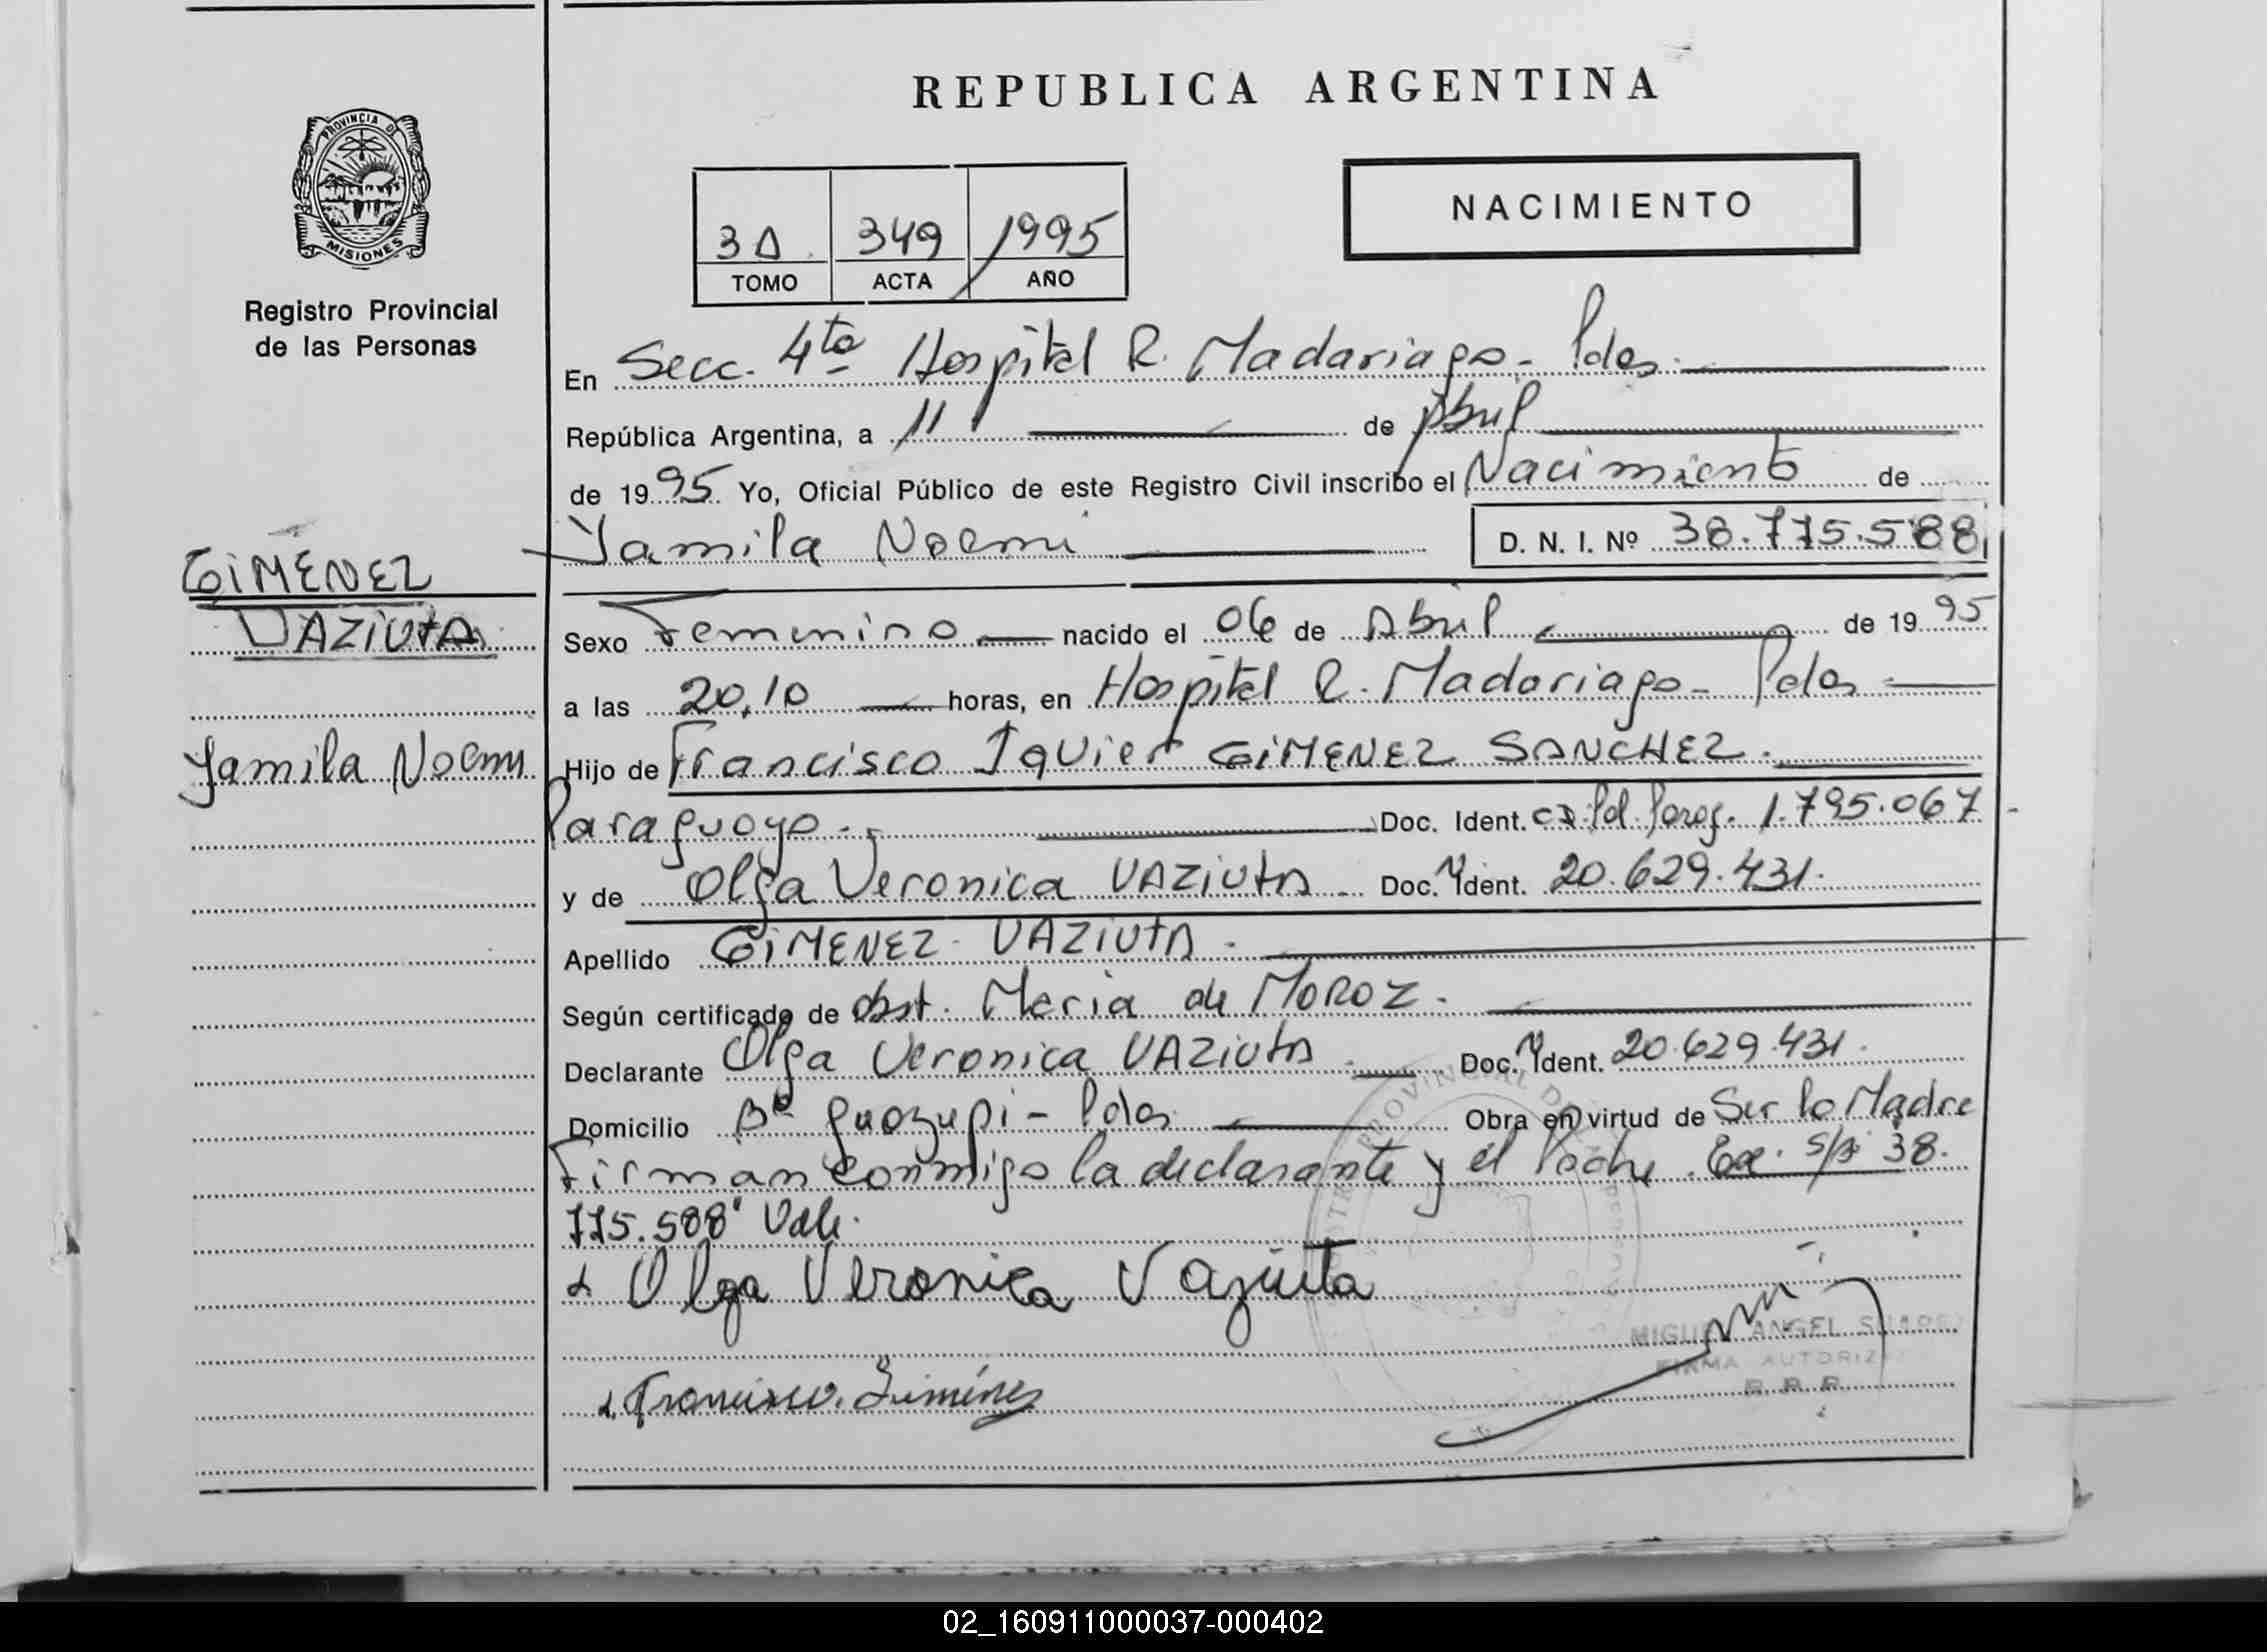 REPUBLICA ARGENTINA
PROVINCIA DE
MISIONES
Registro Provincial
de las Personas
NACIMIENTO
3A 349 1995
TOMO ACTA AÑO
En Secc. 4ta Hospital R. Madariaga - Pdas.
República Argentina, a 11 de Abril
de 1995 Yo, Oficial Público de este Registro Civil inscribo el Nacimiento de
Yamila Noemi D. N. I. Nº 38.775.588
GIMENEZ
VAZIUTA
Yamila Noemi
Sexo Femenino nacido el 06 de Abril de 1995
a las 20,10 horas, en Hospital R. Madariaga - Pdas
Hijo de Francisco Javier GIMENEZ SANCHEZ.
Paraguayo. Doc. Ident. Pol. Parag. 1.795.067
y de Olga Veronica VAZIUTA Doc. N Ident. 20.629.431.
Apellido GIMENEZ VAZIUTA.
Según certificado de Obst. Maria de MOROZ.
Declarante Olga Veronica VAZIUTA. Doc. N Ident. 20.629.431.
Domicilio Bº Guazupi - Pdas Obra en virtud de Ser la Madre
Firman conmigo la declarante y el Padre. 38.
775.588" Vale.
Olga Veronica Vaziuta
Francisco. Giménez
MIGUEL ANGEL
FIRMA AUTORIZ
02_160911000037-000402